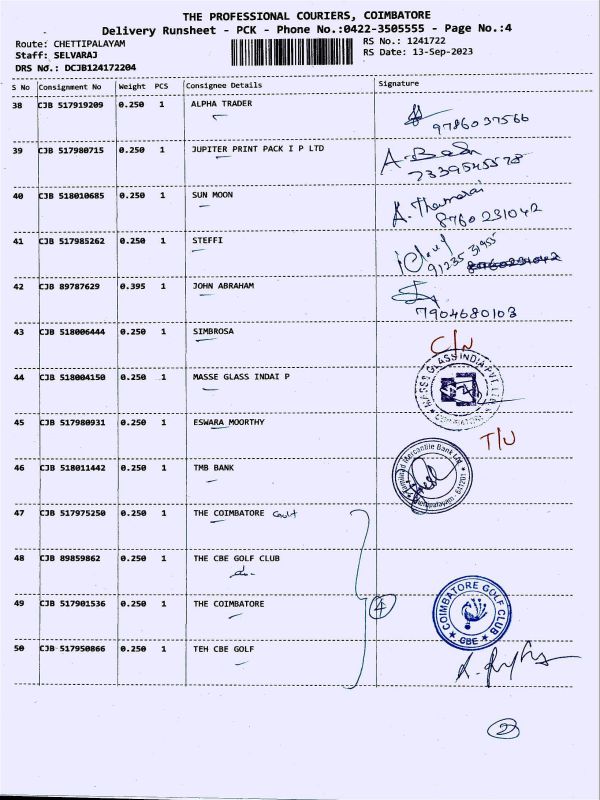 THE PROFESSIONAL COURIERS, COIMBATORE
Delivery Runsheet - PCK - Phone No.:0422-3505555 - Page No.:4
Route: CHETTIPALAYAM RS No.: 1241722
Staff: SELVARAJ RS Date: 13-Sep-2023
DRS No.: DCJB124172204
S No Consignment No Weight PCS Consignee Details Signature
38 CJB 517919209 0.250 1 ALPHA TRADER
9786037566
39 CJB 517980715 0.250 1 JUPITER PRINT PACK I P LTD
7339545578
40 CJB 518010685 0.250 1 SUN MOON
8760231042
41 CJB 517985262 0.250 1 STEFFI
91235 31955
42 CJB 89787629 0.395 1 JOHN ABRAHAM
7904680103
43 CJB 518006444 0.250 1 SIMBROSA
C/N
44 CJB 518004150 0.250 1 MASSE GLASS INDAI P
MASSE GLASS INDIA PVT. LTD.
45 CJB 517980931 0.250 1 ESWARA MOORTHY
T/U
46 CJB 518011442 0.250 1 TMB BANK
Mercantile Bank Ltd.
47 CJB 517975250 0.250 1 THE COIMBATORE
48 CJB 89859862 0.250 1 THE CBE GOLF CLUB
49 CJB 517901536 0.250 1 THE COIMBATORE
4
COIMBATORE GOLF CLUB
CBE
50 CJB 517950866 0.250 1 TEH CBE GOLF
2